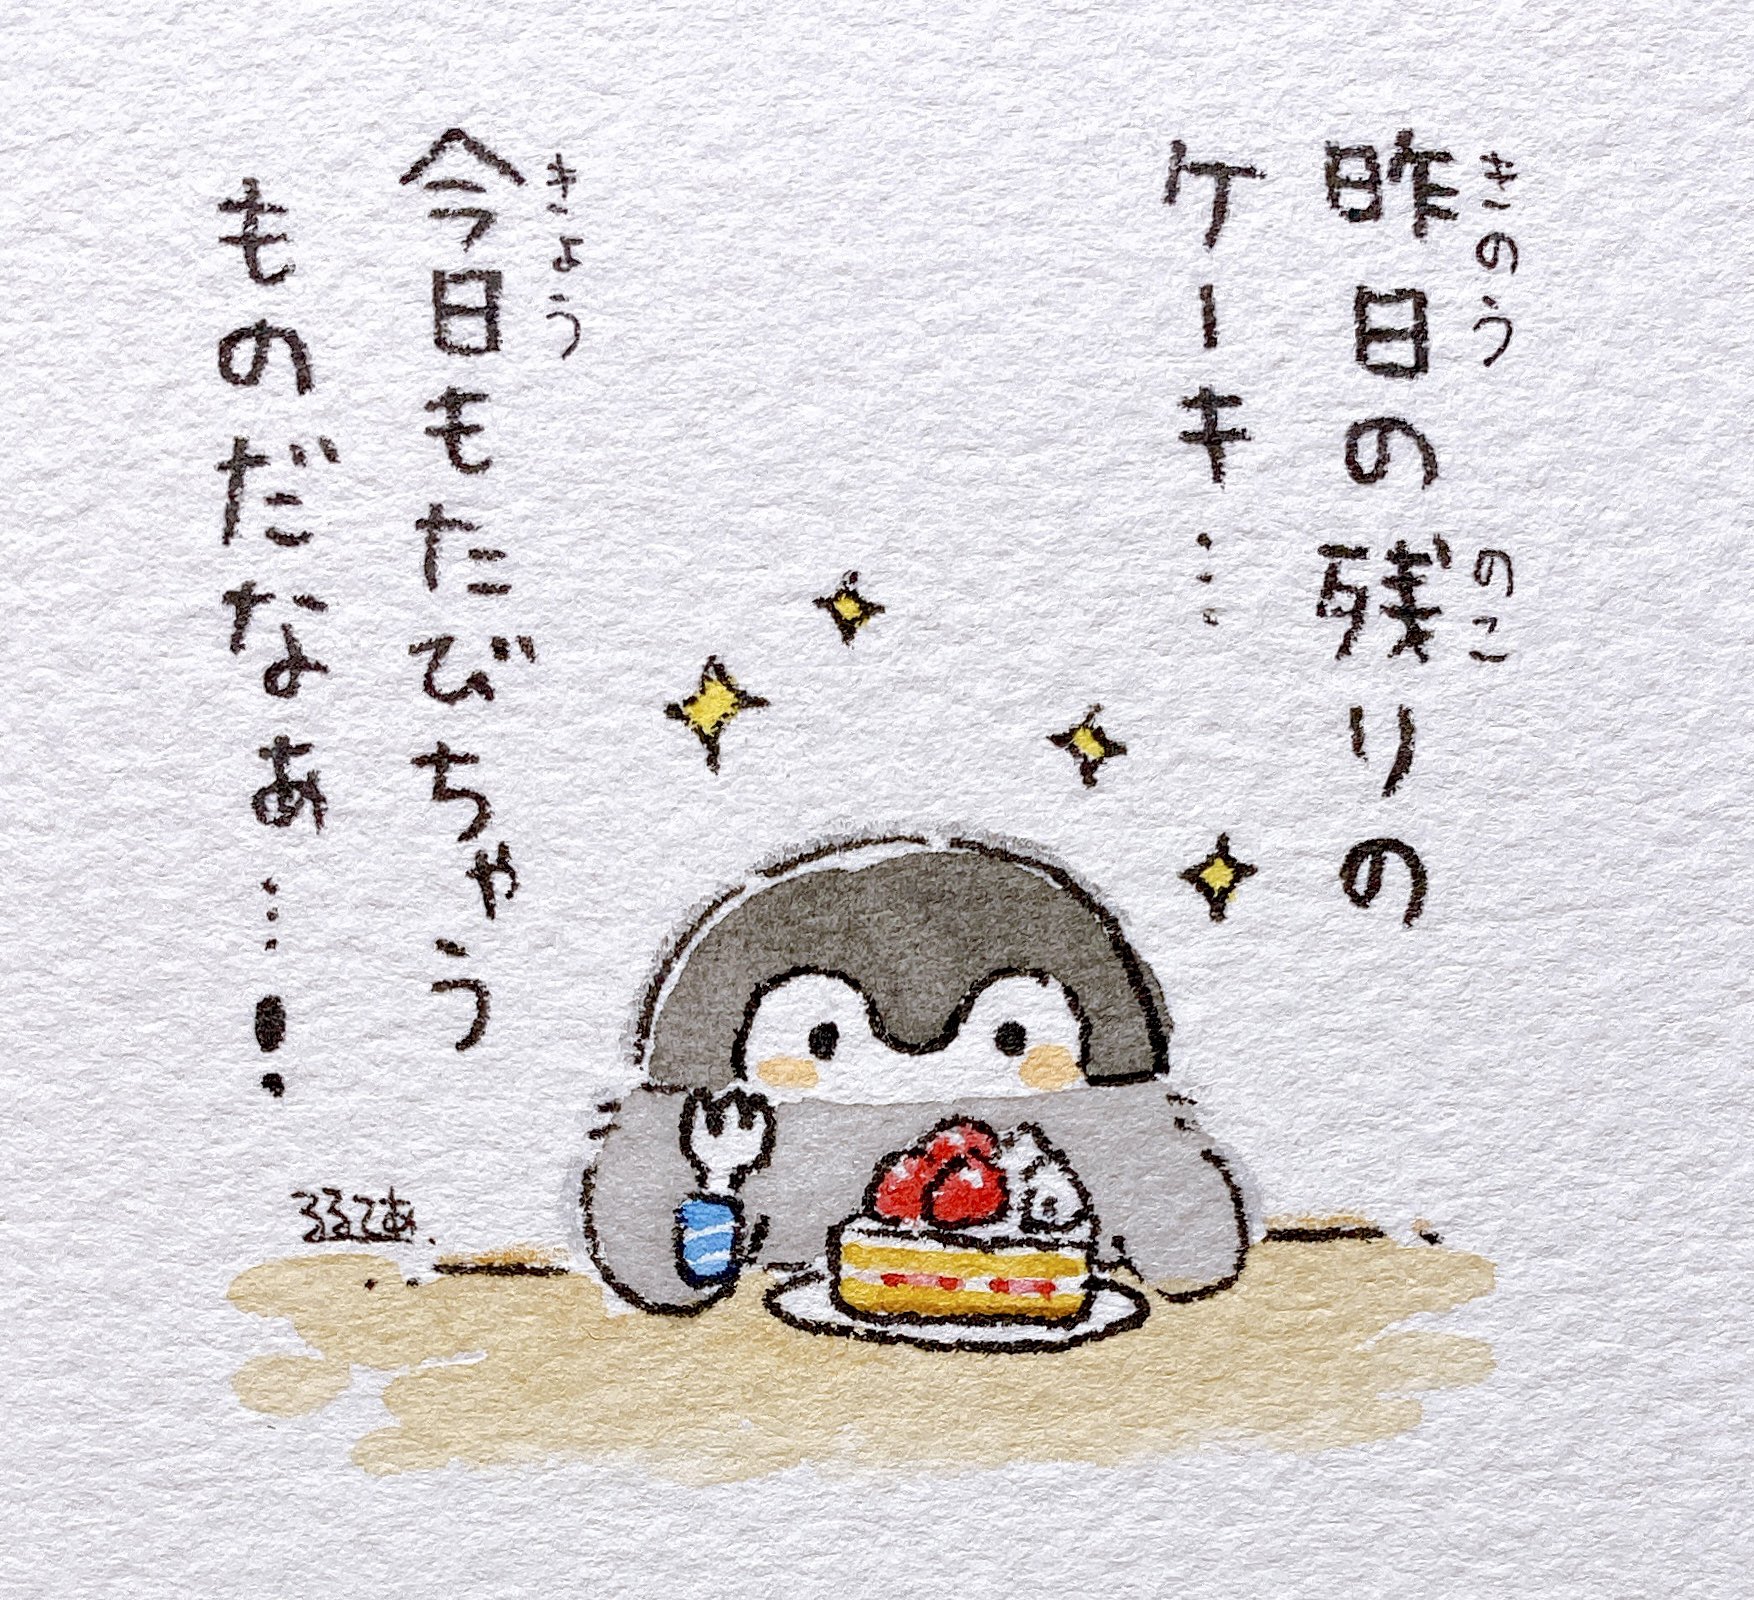 昨日の残りの
きのう
のこ
ケーキ…
今日もたびちゃう
きょう
ものだなぁ…!
るるてあ